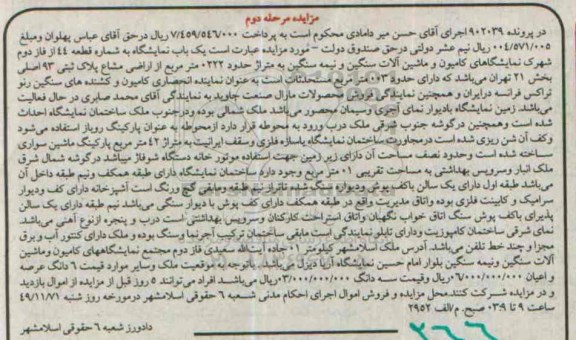 مزایده مرحله دوم
در پرونده ۹۰۲۰۳۹ اجرای آقای حسن میر دامادی محکوم است به پرداخت ۷/۴۵۹/۵۴۶/۰۰۰ ریال درحق آقای عباس پهلوان ومبلغ
۰۰۴/۵۷۱/۰۰۵ ریال نیم عشر دولتی درحق صندوق دولت – مورد مزایده عبارت است یک باب نمایشگاه به شماره قطعه ۴۴ از فاز دوم
شهرک نمایشگاهای کامیون و ماشین آلات سنگین و نیمه سنگین به متراژ حدود ۰۲۲۲ متر مربع از اراضی مشاع پلاک ثبتی ۹۳ اصلی
بخش ۲۱ تهران می‌باشد که دارای حدود ۰۰۳ متر مربع مستحدثات است به عنوان نماینده انحصاری کامیون و کشنده های سنگین رنو
تراکس فرانسه درایران و همچنین نمایندگی فروش محصولات مارال صنعت جاوید به نمایندگی آقای محمد صابری در حال فعالیت
می‌باشد. زمین نمایشگاه بادیوار نمای آجری وسیمان محصور می‌باشد ملک شمالی بوده ودرجنوب ملک ساختمان نمایشگاه احداث
شده است وهمچنین درگوشه جنوب شرقی ملک درب ورود به محوطه قرار دارد ازمحوطه به عنوان پارکینگ روباز استفاده می‌شود
وکف آن شن ریزی شده است درمجاورت ساختمان نمایشگاه باسازه فلزی وسقف ایرانیت به متراژ ۴۲ متر مربع پارکینگ ماشین سواری
ساخته شده است وحدود نصف مساحت آن دارای زیر زمین جهت استفاده موتور خانه دستگاه شوفاژ میباشد درگوشه شمال شرق
ملک انبار وسرویس بهداشتی به مساحت تقریبی ۰۱ متر مربع وجود دارد ساختمان نمایشگاه دارای طبقه همکف ونیم طبقه داخل آن
می‌باشد طبقه اول دارای یک سالن باکف پوش ودیوار سنگ شده تاتراز نیم طبقه ومابقی گچ ورنگ است آشپزخانه دارای کف ودیوار
سرامیک و کابینت فلزی بوده واتاق مدیریت واقع در طبقه همکف دارای کف پوش با دیوار سنگی می‌باشد نیم طبقه دارای یک سالن
پذیرای باکف پوش سنگ اتاق خواب نگهبان واتاق استراحت کارکنان وسرویس بهداشتی است درب و پنجره ازنوع آهنی می‌باشد
نمای شرقی ساختمان کامپوزیت ودارای تابلو نمایندگی است مابقی ساختمان ترکیب آجرنما وسنگ بوده و ملک دارای کنتور آب و برق
مجزا و چند خط تلفن می‌باشد. آدرس ملک اسلامشهر کیلومتر ۰۱ جاده آیت‌الله سعیدی فاز دوم مجتمع نمایشگاههای کامیون وماشین
آلات سنگین ونیمه سنگین بلوار امام حسین نمایشگاه آریا دیزل می‌باشد. باتوجه به موقعیت ملک وسایر موارد قیمت ۶ دانگ عرصه
و اعیان ۰۶/۰۰۰/۰۰۰/۰۰۰ ریال وقیمت سه دانگ ۰۳/۰۰۰/۰۰۰/۰۰۰ ریال می‌باشد افراد می‌توانند ۵ روز قبل از مزایده از اموال بازدید
و در مزایده شرکت کنند.محل مزایده و فروش اموال اجرای احکام مدنی شعبه ۶ حقوقی اسلامشهر درمورخه روز شنبه ۴۹/۱۱/۷۱
ساعت ۹ تا ۰۳:۹ صبح. م/الف ۲۹۵۲
دادورز شعبه ۶ حقوقی اسلامشهر
۲۶۶